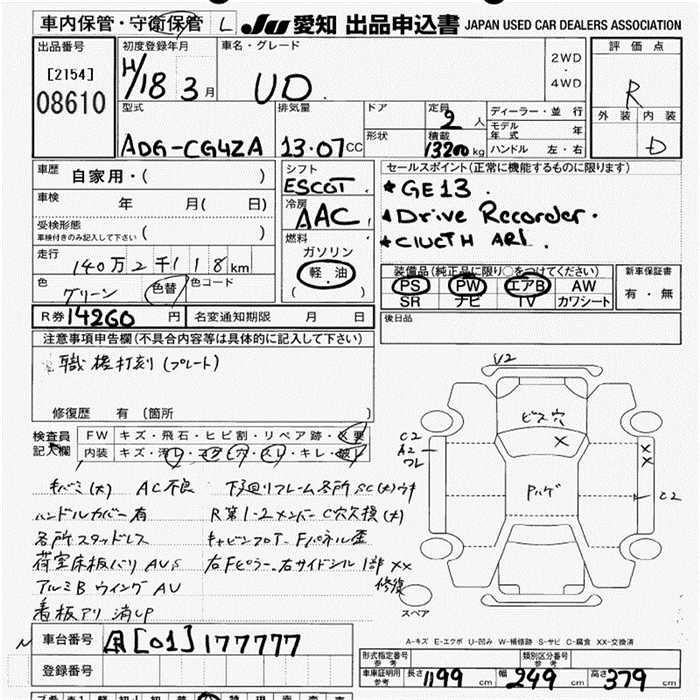 車内保管・守衛保管 L JU 愛知 出品申込書 JAPAN USED CAR DEALERS ASSOCIATION
出品番号 初度登録年月 車名・グレード 2WD・4WD 評価点
[2154] H/18 3月 UD R
08610 外装 内装
型式 排気量 ドア 定員 2人 ディーラー・並行
モデル年式 年
ADG-CG4ZA 13.07CC 形状 積載 13200kg ハンドル 左・右 D
車歴 自家用・( ) シフト セールスポイント(正常に機能するものに限ります)
ESCOT
車検 年 月( 日) 冷房 ★GE13.
AAC ★Drive Recorder.
受検形態 車検付きのみ記入して下さい ( ) 燃料 ★CLUCTH ARI.
走行 140万2千118km ガソリン
軽・油 装備品(純正品に限り○をつけてください) 新車保証書
色 グリーン 色替 色コード ( ) PS PW エアB AW 有・無
SR ナビ TV カワシート
R券 14260円 名変通知期限 月 日 後日品
注意事項申告欄(不具合内容等は具体的に記入して下さい)
職権打刻(プレート)
修復歴 有(箇所 )
V2
ビス穴
X
検査員記入欄 FW キズ・飛石・ヒビ割・リペア跡・X要
内装 キズ・汚レ・コゲ・穴・スレ・キレ・破レ
C2
A2
ワレ
XX
Aハゲ
C2
キバミ(大) AC不良 下廻りフレーム各所SC(大)ウキ
ハンドルカバー有 R第1-2メンバーC穴欠損(大)
各所スタッドレス キャビンフロア-Fパネル歪
荷室床板バリAVS 右Fピラー、右サイドシル1部XX
アルミBウイングAU 修復
看板アリ消UP
スペア
A-キズ E-エクボ U-凹み W-補修跡 S-サビ C-腐食 XX-交換済
車台番号 [01]177777
登録番号
形式指定番号 参考 類別区分番号 参考
車庫証明用 参考 長さ 1199cm 幅 249cm 高さ 379cm